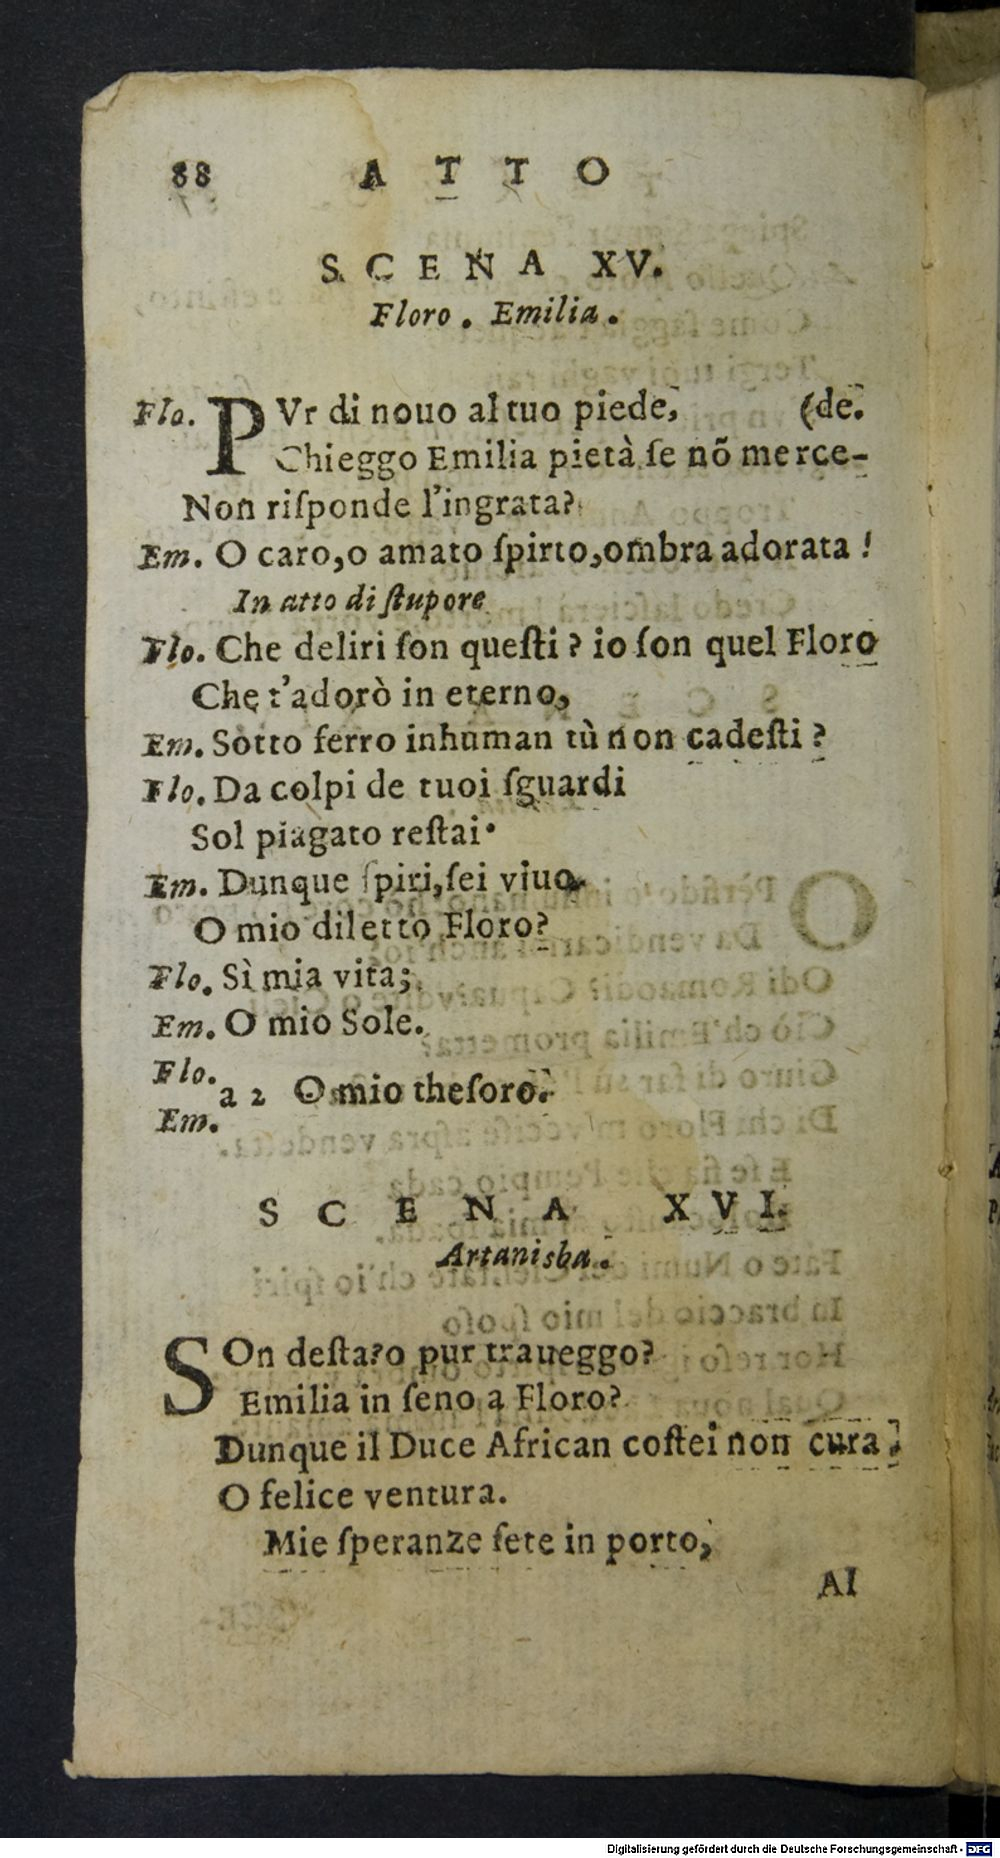 88 ATTO
SCENA XV.
Floro. Emilia.
Flo. PVr di nouo al tuo piede, (de.
Chieggo Emilia pietà se nõ merce-
Non riſponde l'ingrata?
Em. O caro,o amato ſpirto,ombra adorata !
In atto di ſtupore
Flo. Che deliri ſon queſti ? io ſon quel Floro
Che t'adorò in eterno,
Em. Sotto ferro inhuman tù non cadeſti ?
Flo. Da colpi de tuoi ſguardi
Sol piagato reſtai.
Em. Dunque ſpiri,ſei viuo
O mio diletto Floro?
Flo. Sì mia vita;
Em. O mio Sole.
Flo.
a 2 O mio theſoro.
Em.
SCENA XVI.
Artanisba.
SOn deſta?o pur traueggo?
Emilia in ſeno a Floro?
Dunque il Duce African coſtei non cura?
O felice ventura.
Mie ſperanze ſete in porto,
AI